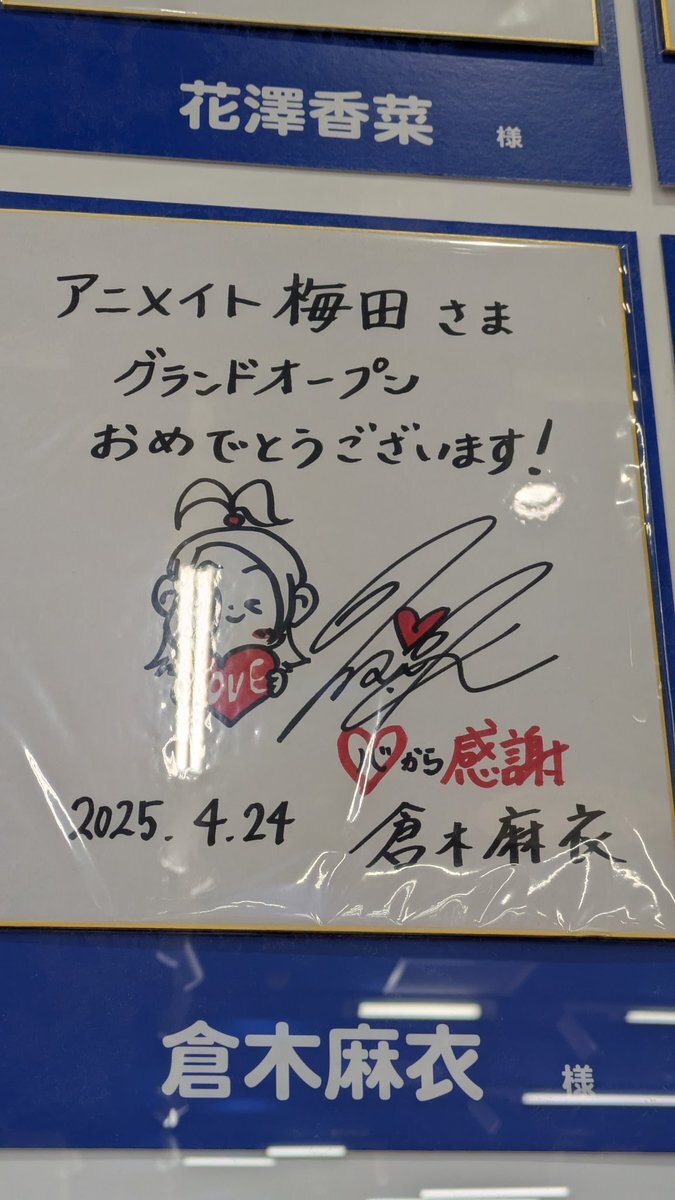 花澤香菜 様
アニメイト梅田さま
グランドオープン
おめでとうございます!
LOVE
心から感謝
2025.4.24
倉木麻衣
倉木麻衣 様